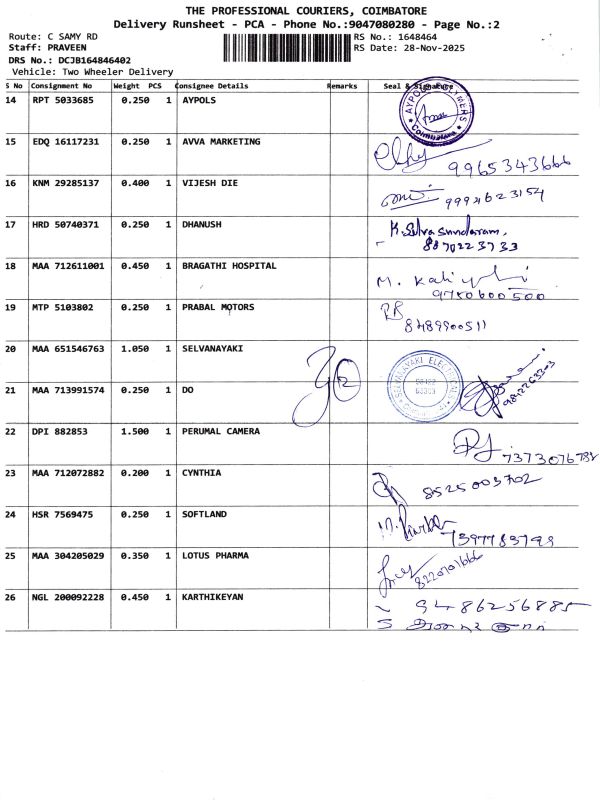 THE PROFESSIONAL COURIERS, COIMBATORE
Delivery Runsheet - PCA - Phone No.:9047080280 - Page No.:2
Route: C SAMY RD
RS No.: 1648464
Staff: PRAVEEN
RS Date: 28-Nov-2025
DRS No.: DCJB164846402
Vehicle: Two Wheeler Delivery
S No Consignment No Weight PCS Consignee Details Remarks Seal & Signature
14 RPT 5033685 0.250 1 AYPOLS
15 EDQ 16117231 0.250 1 AVVA MARKETING 9965343666
16 KNM 29285137 0.400 1 VIJESH DIE 9994623154
17 HRD 50740371 0.250 1 DHANUSH K. Selvasundaram,
8870223733
18 MAA 712611001 0.450 1 BRAGATHI HOSPITAL M.
9750600500
19 MTP 5103802 0.250 1 PRABAL MOTORS
8489900511
20 MAA 651546763 1.050 1 SELVANAYAKI
21 MAA 713991574 0.250 1 DO
22 DPI 882853 1.500 1 PERUMAL CAMERA
23 MAA 712072882 0.200 1 CYNTHIA 8525003702
24 HSR 7569475 0.250 1 SOFTLAND
25 MAA 304205029 0.350 1 LOTUS PHARMA
26 NGL 200092228 0.450 1 KARTHIKEYAN 9486256885